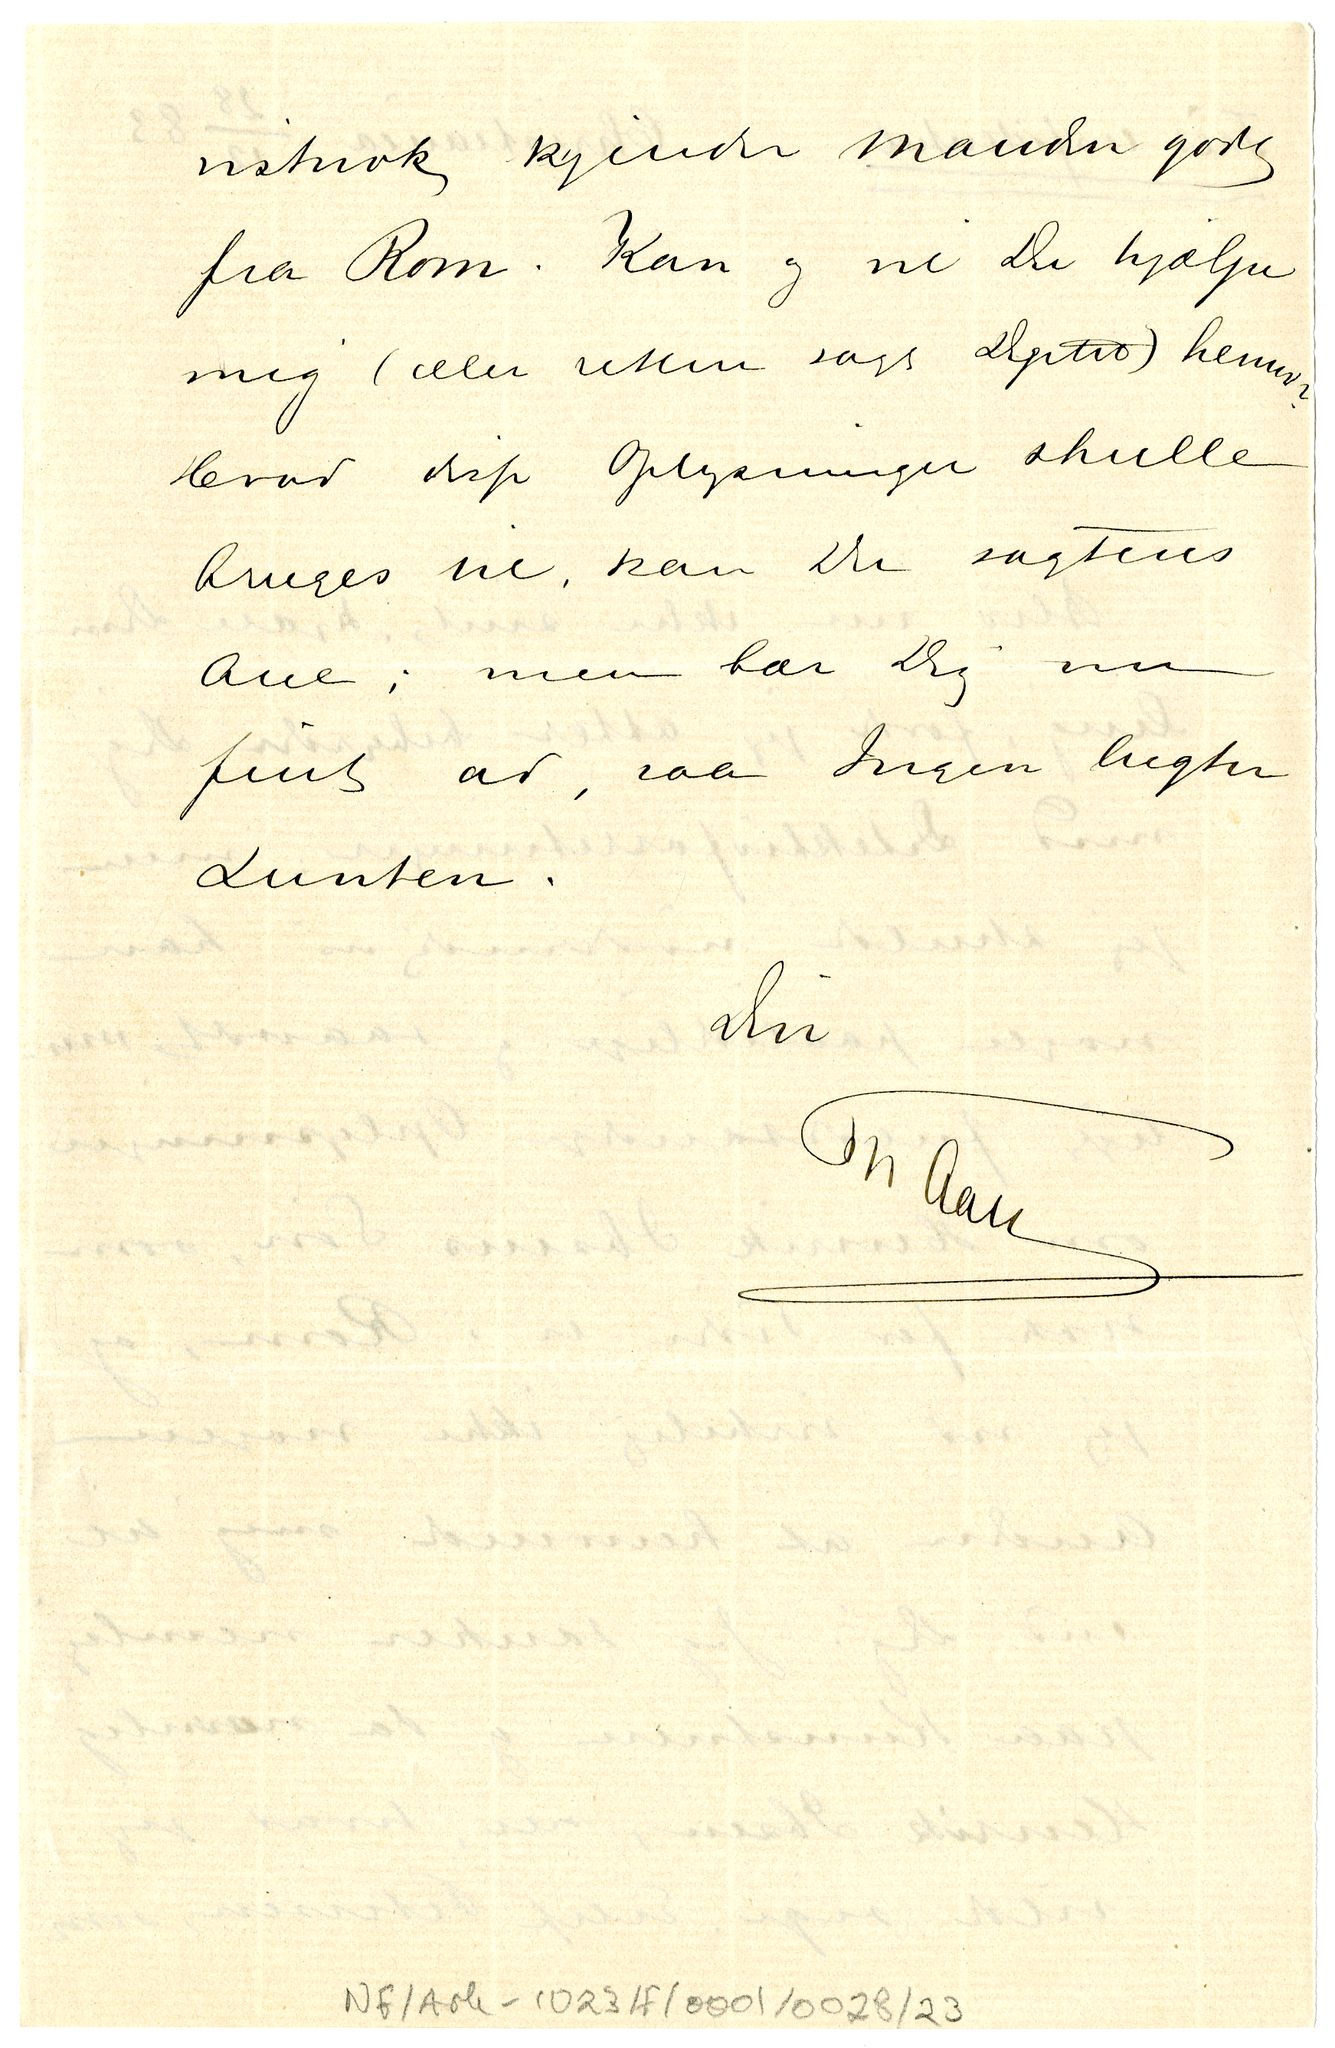 vistnok kjender Manden godt
fra Rom. Kan og vil Du hjælpe
mig (eller rettere sagt Dept.et) hermed?
Hvad disse Oplysninger skulle
bruges til, kan Du sagtens
Ane; men bær Dig nu
fint ad, saa Ingen lugter
Lunten.
Din
Th Aall
NF/Ark-1023/F/0001/0028/23